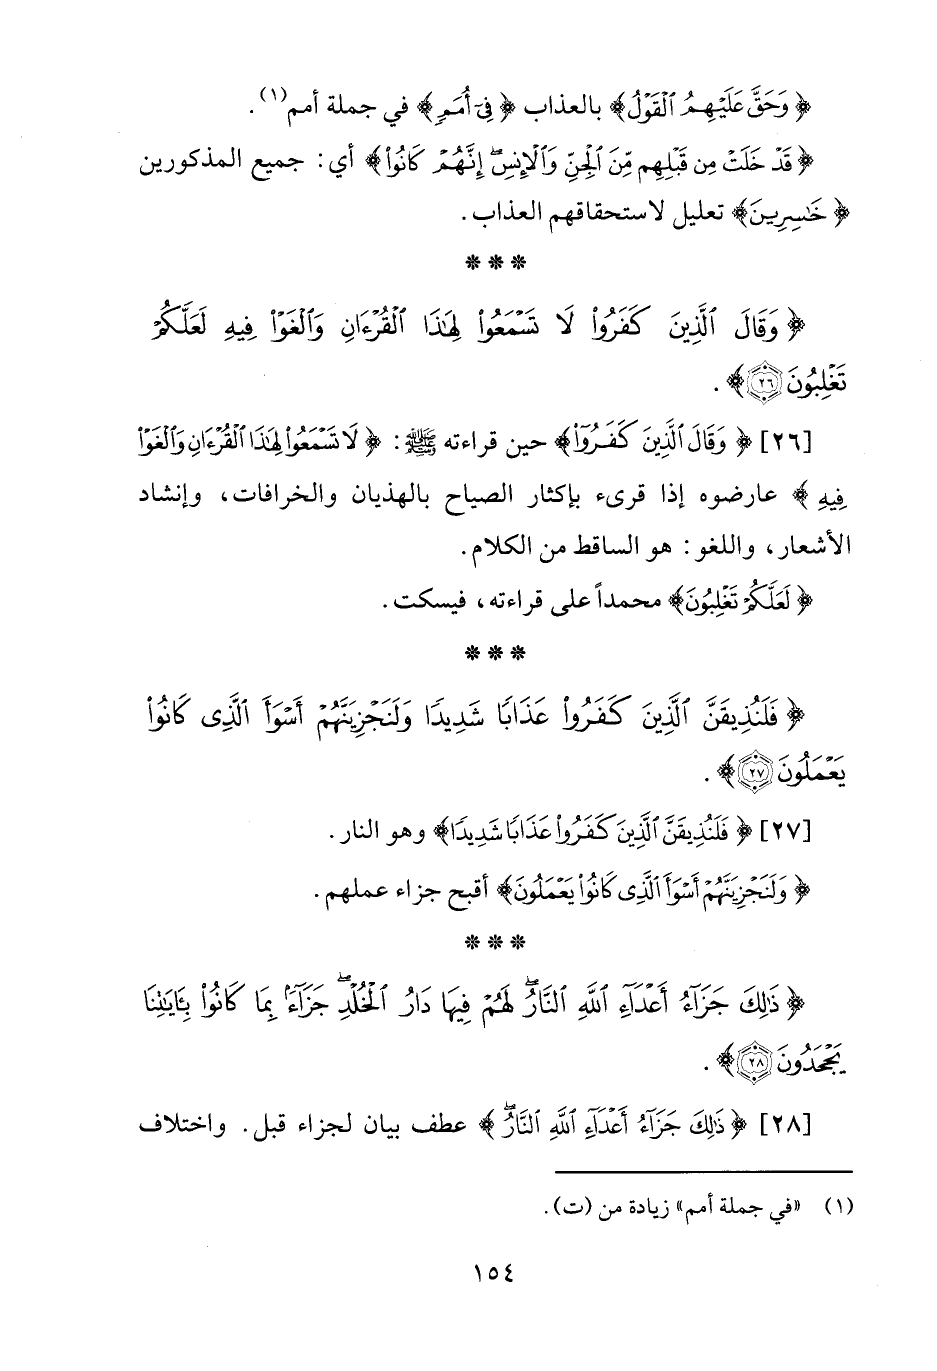 ﴿ وَحَقَّ عَلَيْهِمُ ٱلْقَوْلُ﴾ بالعذاب ﴿ فِىٓ أُمَمٍ﴾ في جملة أمم(١).
﴿ قَدْ خَلَتْ مِن قَبْلِهِم مِّنَ ٱلْجِنِّ وَٱلْإِنسِ ۖ إِنَّهُمْ كَانُوا۟﴾ أي: جميع المذكورين
﴿ خَـٰسِرِينَ﴾ تعليل لاستحقاقهم العذاب.
* * *
﴿ وَقَالَ ٱلَّذِينَ كَفَرُوا۟ لَا تَسْمَعُوا۟ لِهَـٰذَا ٱلْقُرْءَانِ وَٱلْغَوْا۟ فِيهِ لَعَلَّكُمْ
تَغْلِبُونَ ٢٦﴾.
[٢٦] ﴿ وَقَالَ ٱلَّذِينَ كَفَرُوا۟﴾ حين قراءته ﷺ: ﴿ لَا تَسْمَعُوا۟ لِهَـٰذَا ٱلْقُرْءَانِ وَٱلْغَوْا۟
فِيهِ ﴾ عارضوه إذا قرىء بإكثار الصياح بالهذيان والخرافات، وإنشاد
الأشعار، واللغو: هو الساقط من الكلام.
﴿ لَعَلَّكُمْ تَغْلِبُونَ﴾ محمداً على قراءته، فيسكت.
* * *
﴿ فَلَنُذِيقَنَّ ٱلَّذِينَ كَفَرُوا۟ عَذَابًا شَدِيدًا وَلَنَجْزِيَنَّهُمْ أَسْوَأَ ٱلَّذِى كَانُوا۟
يَعْمَلُونَ ٢٧﴾.
[٢٧] ﴿ فَلَنُذِيقَنَّ ٱلَّذِينَ كَفَرُوا۟ عَذَابًا شَدِيدًا﴾ وهو النار.
﴿ وَلَنَجْزِيَنَّهُمْ أَسْوَأَ ٱلَّذِى كَانُوا۟ يَعْمَلُونَ﴾ أقبح جزاء عملهم.
* * *
﴿ ذَٰلِكَ جَزَآءُ أَعْدَآءِ ٱللَّهِ ٱلنَّارُ ۖ لَهُمْ فِيهَا دَارُ ٱلْخُلْدِ ۖ جَزَآءًۢ بِمَا كَانُوا۟ بِـَٔايَـٰتِنَا
يَجْحَدُونَ ٢٨﴾.
[٢٨] ﴿ ذَٰلِكَ جَزَآءُ أَعْدَآءِ ٱللَّهِ ٱلنَّارُ ۖ ﴾ عطف بيان لجزاء قبل. واختلاف
(١) «في جملة أمم» زيادة من (ت).
١٥٤